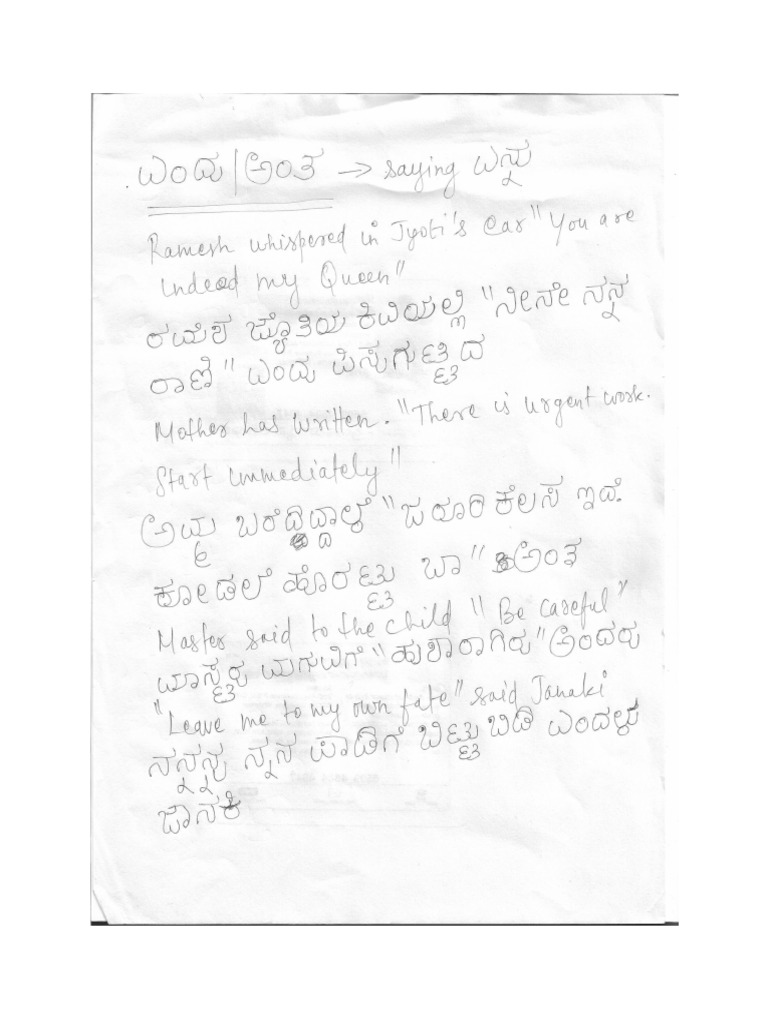 ಎಂದು | ಅಂತ → saying ಎನ್ನು
Ramesh whispered in Jyoti's ear "You are
indeed my Queen"
ರಮೇಶ ಜ್ಯೋತಿಯ ಕಿವಿಯಲ್ಲಿ "ನೀನೇ ನನ್ನ
ರಾಣಿ" ಎಂದು ಪಿಸುಗುಟ್ಟಿದ
Mother has written. "There is urgent work.
Start immediately"
ಅಮ್ಮ ಬರೆದಿದ್ದಾಳೆ "ಜರೂರಿ ಕೆಲಸ ಇದೆ.
ಕೂಡಲೆ ಹೊರಟ್ಟು ಬಾ" ಅಂತ
Master said to the child "Be careful"
ಮಾಸ್ಟರು ಮಗುವಿಗೆ "ಹುಶಾರಾಗಿರು" ಅಂದರು
"Leave me to my own fate" said Janaki
ನನ್ನನ್ನು ನ್ನನ ಪಾಡಿಗೆ ಬಿಟ್ಟು ಬಿಡಿ ಎಂದಳು
ಜಾನಕಿ